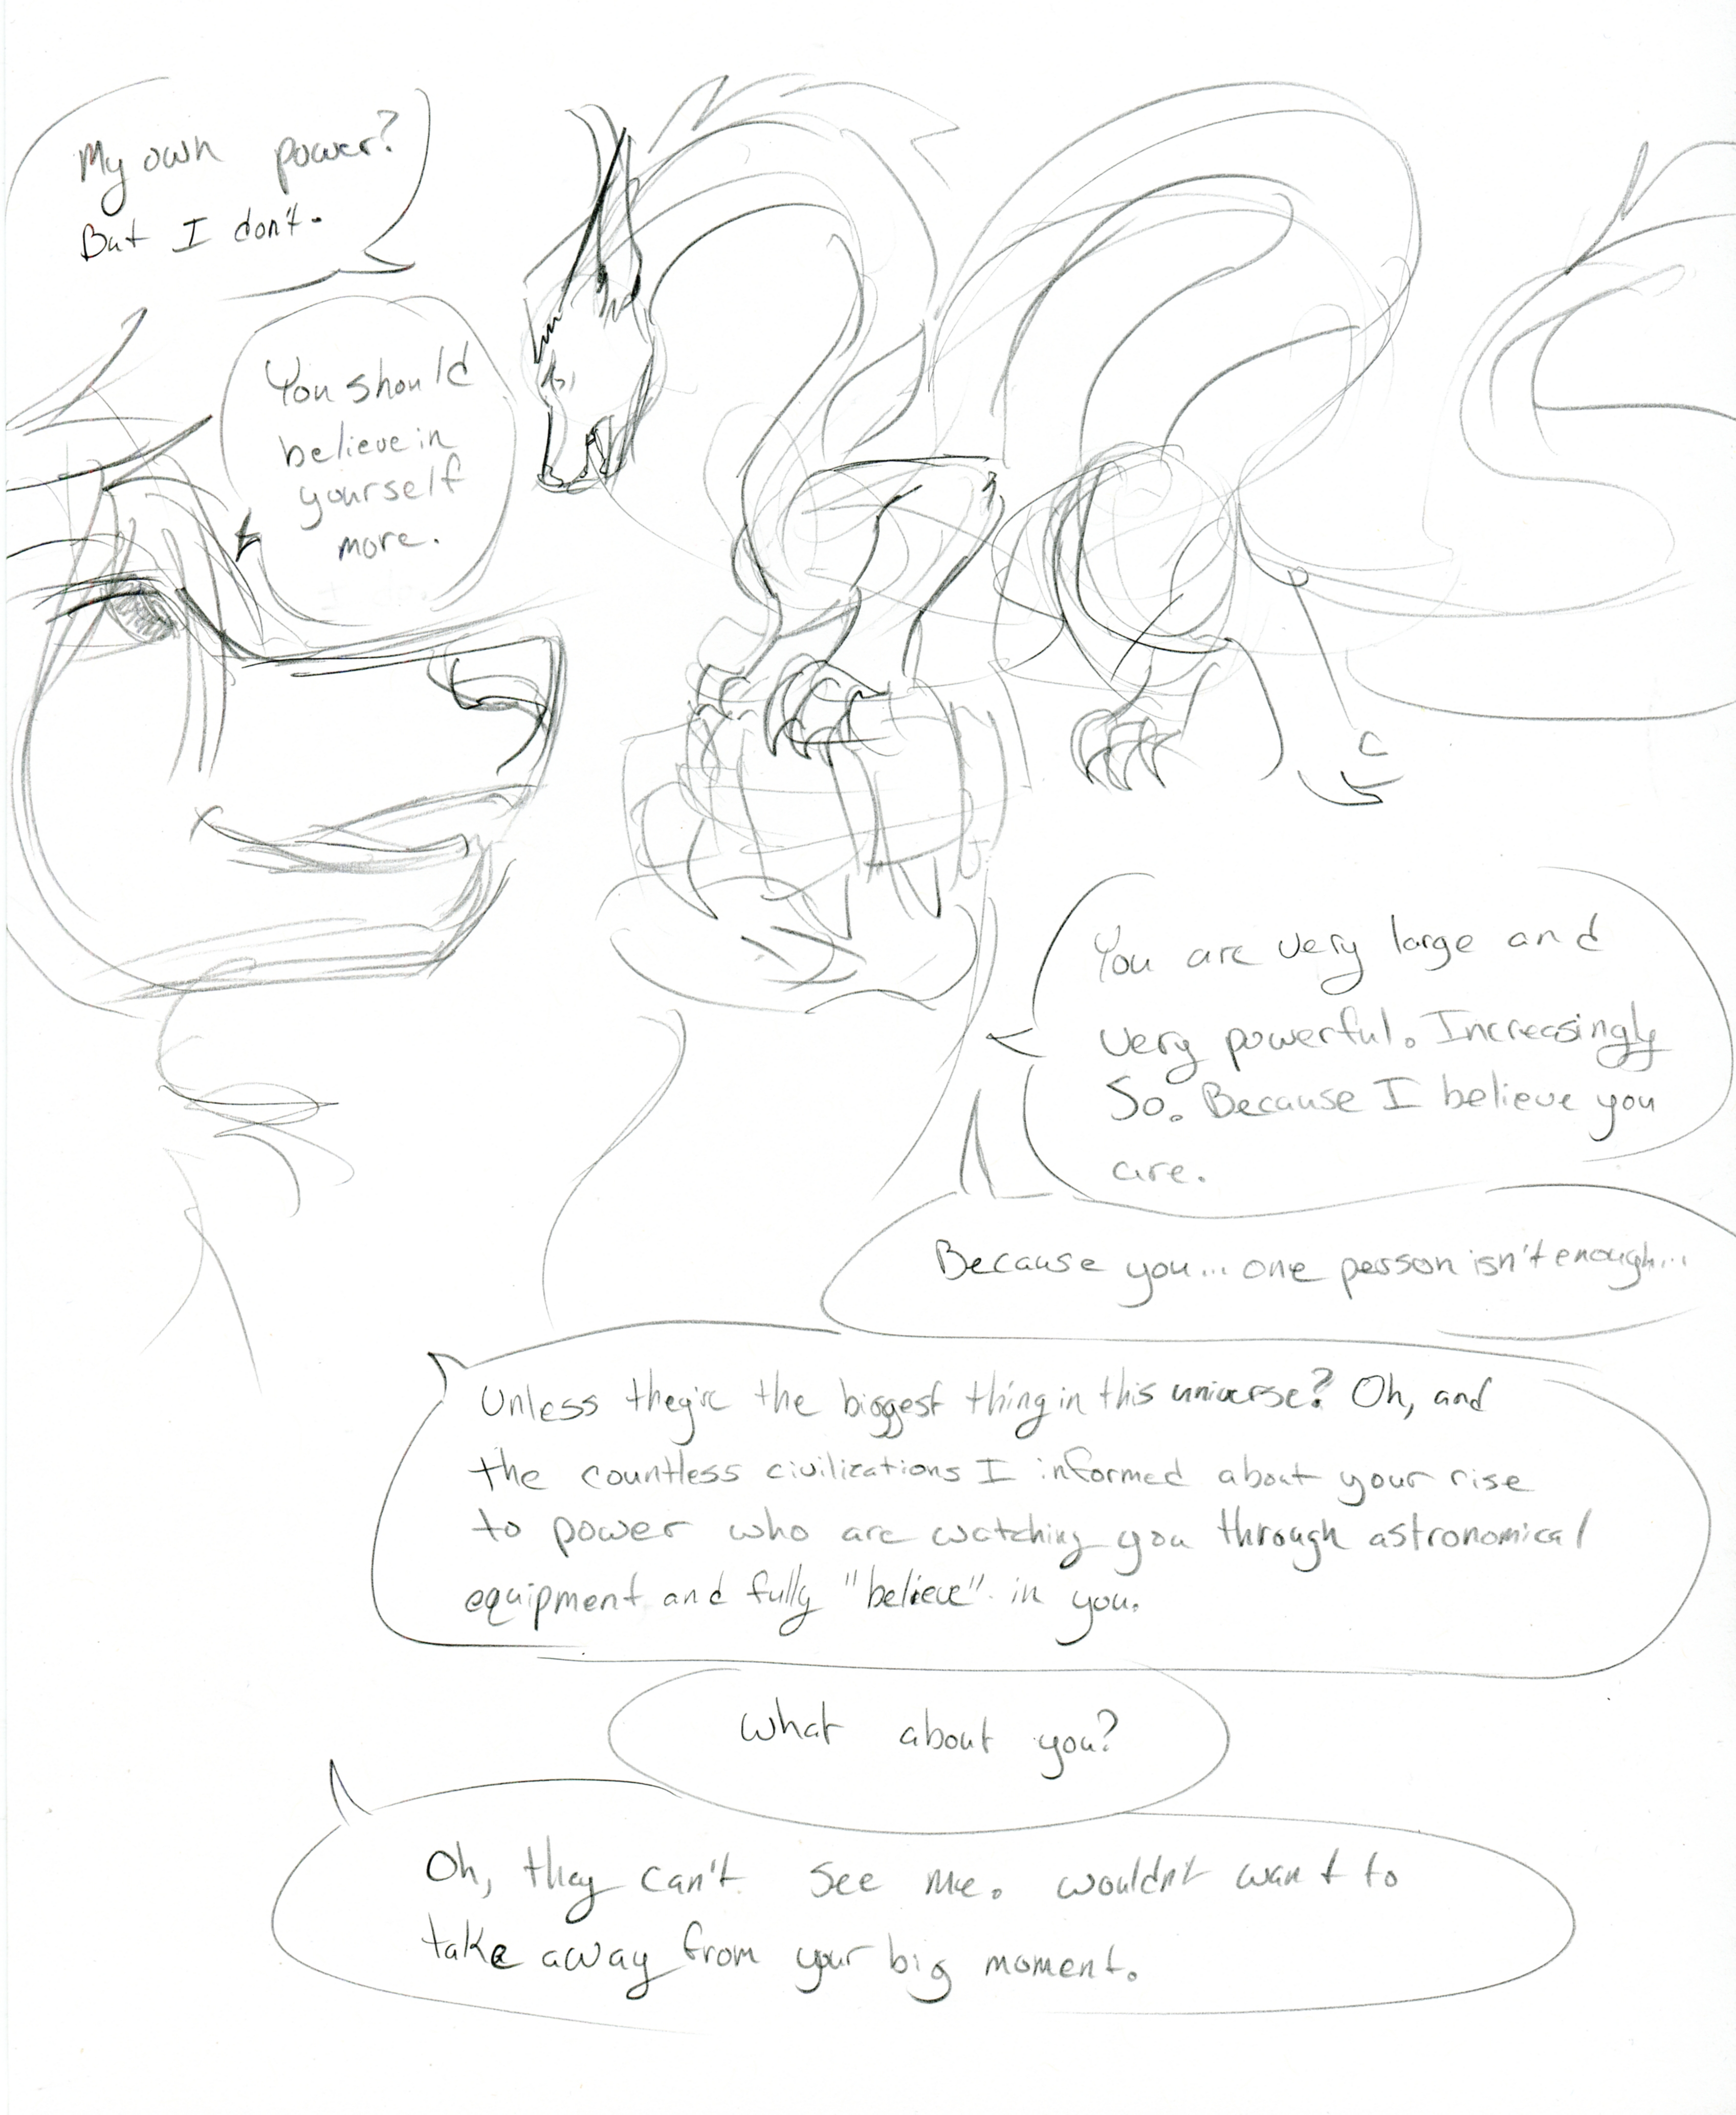 My own power?
But I don't-
You should
believe in
yourself
more.
You are very large and
very powerful. Increasingly
So. Because I believe you
are.
Because you... one person isn't enough...
Unless they're the biggest thing in this universe? Oh, and
the countless civilizations I informed about your rise
to power who are watching you through astronomical
equipment and fully "believe" in you.
What about you?
Oh, they can't see me. wouldn't want to
take away from your big moment.